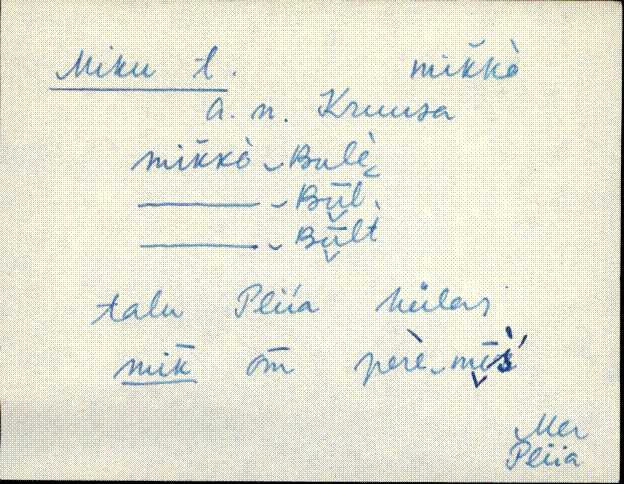 Miku t. mik̆kò
a. n. Kruusa
mik̆kò ‿ Bulè
——— ‿ Būl
——— ‿ Būlt
talu Pliia külas
mik̄ om̄ perè‿mēs
Mer
Pliia